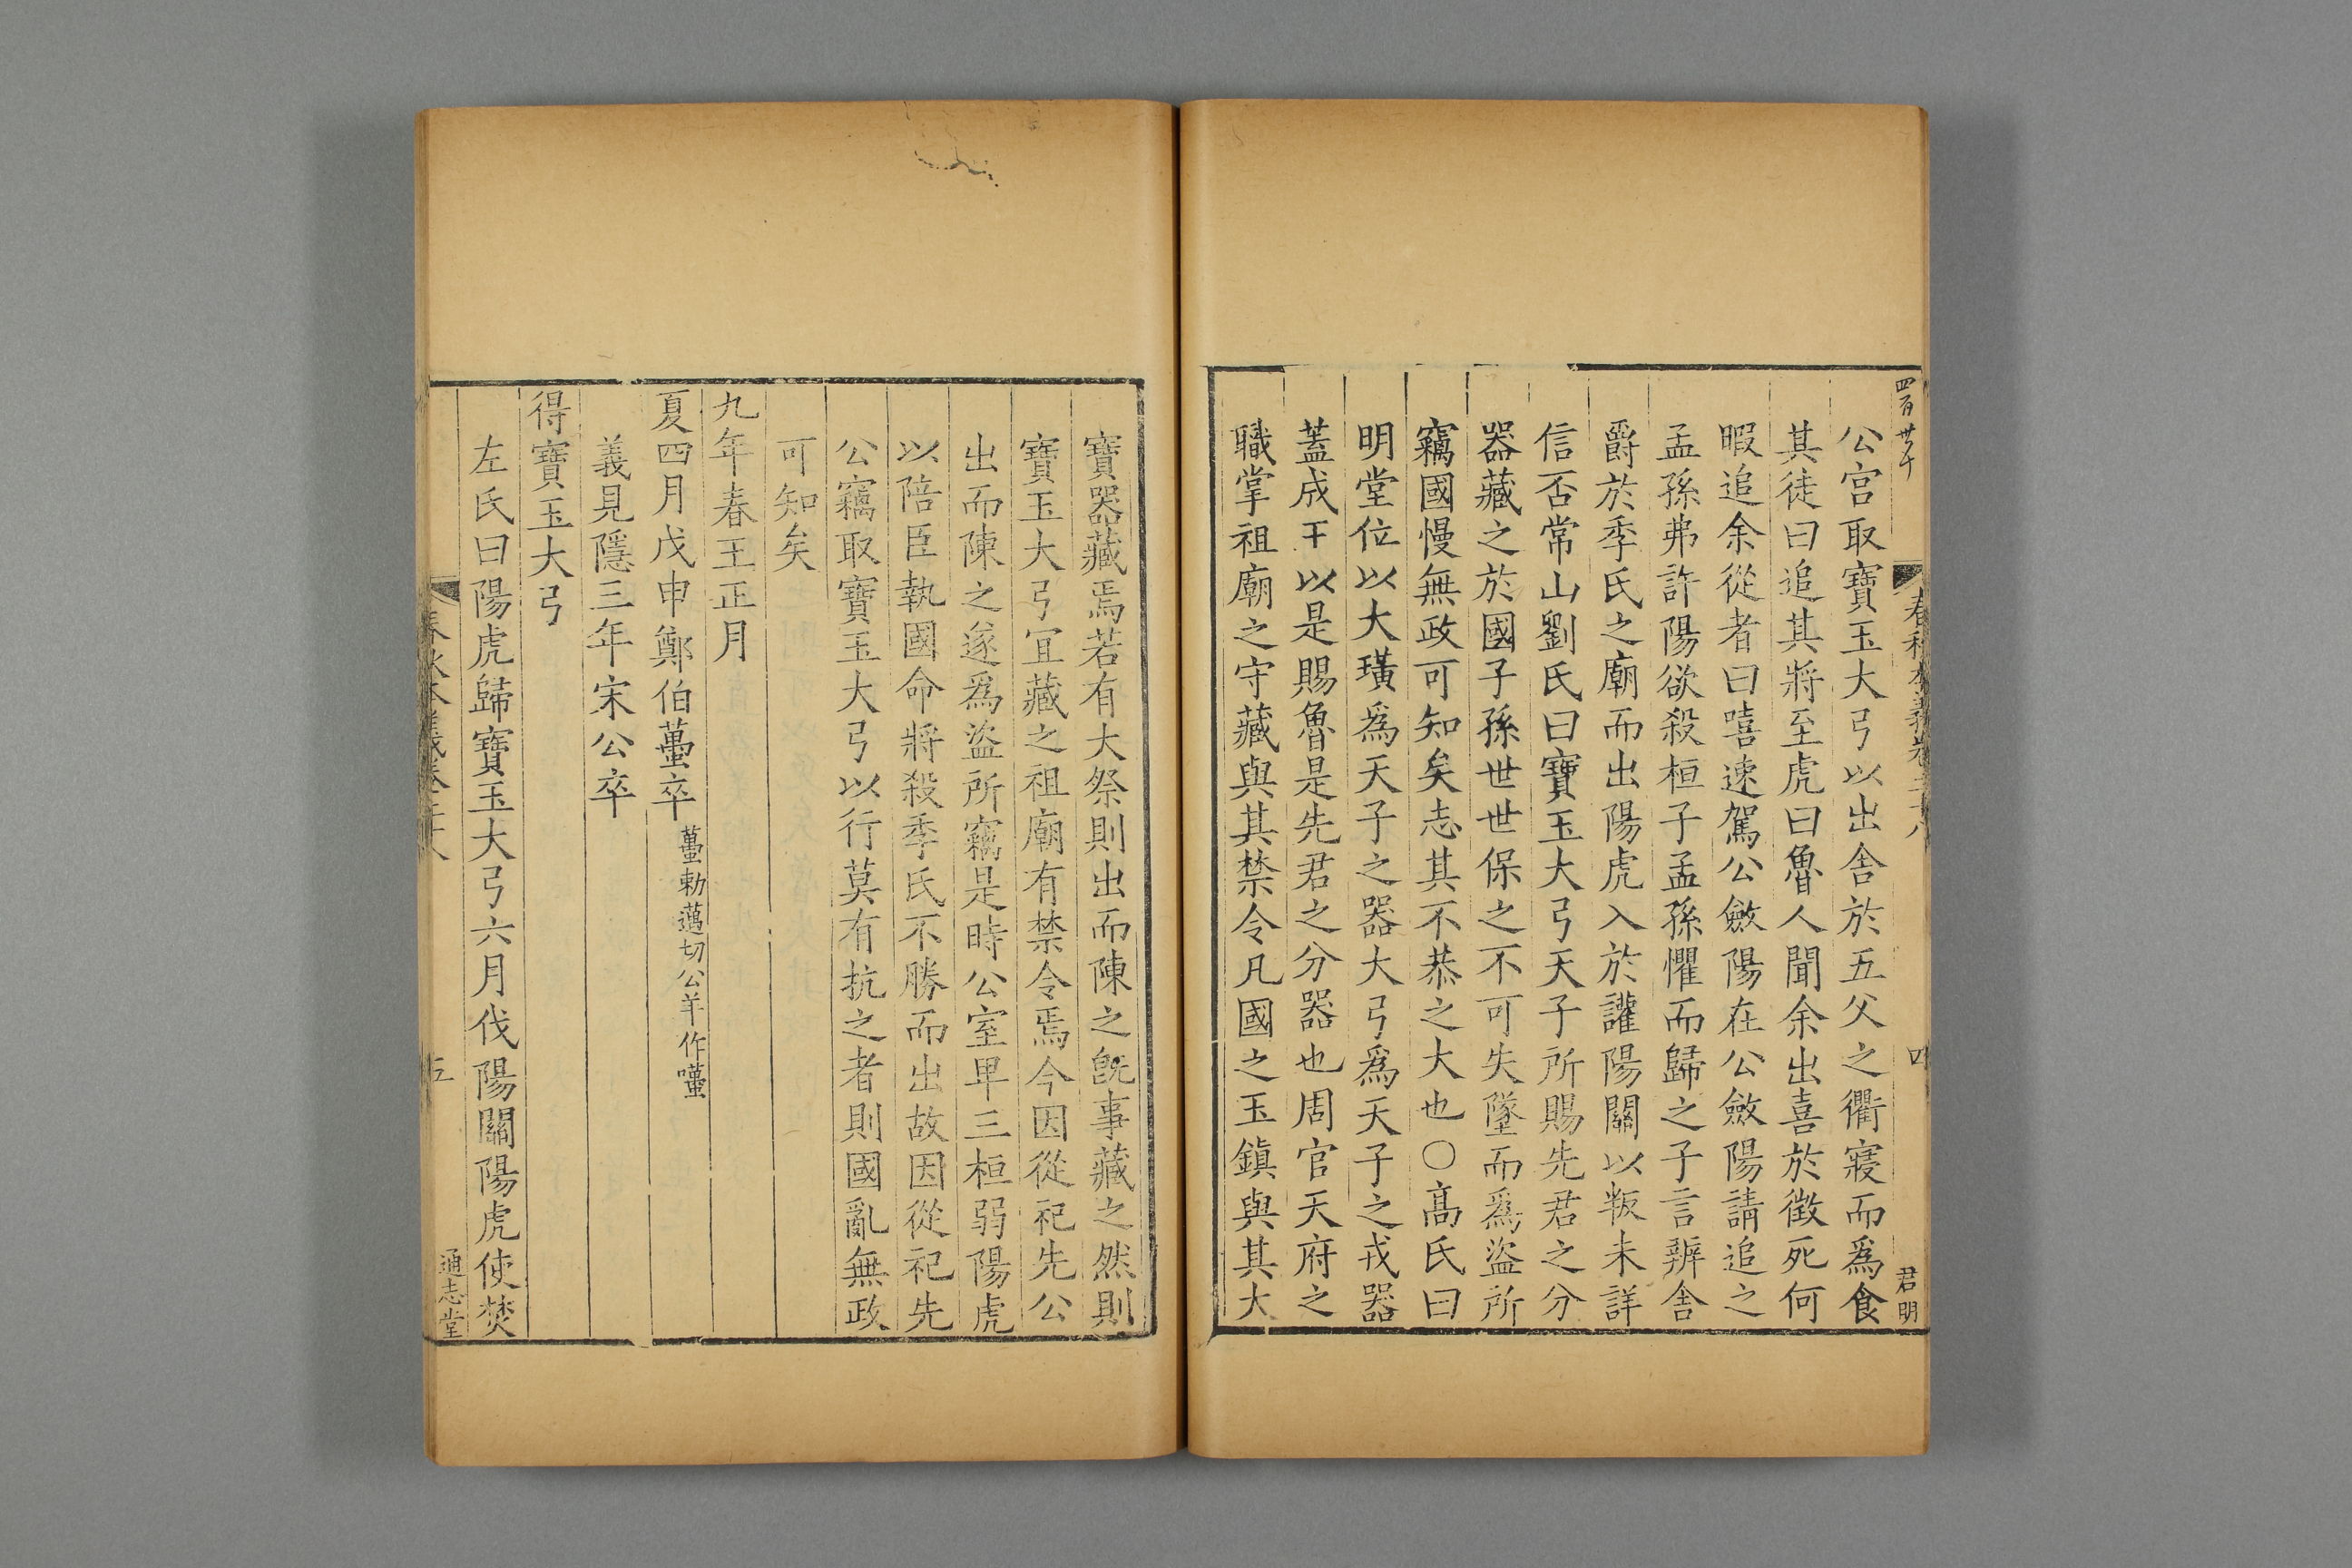 公宫取寶玉大弓以出舎於五父之衢寢而爲食
其徒曰追其將至虎曰魯人聞余出喜於徵死何
暇追余從者曰嘻速駕公斂陽在公斂陽請追之
孟孫弗許陽欲殺桓子孟孫懼而歸之子言辨舎
爵於季氏之廟而出陽虎入於讙陽關以叛未詳
信否常山劉氏曰寶玉大弓天子所賜先君之分
器藏之於國子孫世世保之不可失墜而爲盜所
竊國慢無政可知矣志其不恭之大也○髙氏曰
明堂位以大璜爲天子之器大弓爲天子之戎器
蓋成王以是賜魯是先君之分器也周官天府之
職掌祖廟之守藏與其禁令凡國之玉鎮與其大
君明
寶器藏焉若有大祭則出而陳之旣事藏之然則
寶玉大弓冝藏之祖廟有禁令焉今因從祀先公
出而陳之遂爲盜所竊是時公室卑三桓弱陽虎
以陪臣執國命將殺季氏不勝而出故因從祀先
公竊取寶玉大弓以行莫有抗之者則國亂無政
可知矣
九年春王正月
夏四月戊申鄭伯蠆卒蠆勅邁切公羊作囆
義見隱三年宋公卒
得寶玉大弓
左氏曰陽虎歸寶玉大弓六月伐陽關陽虎使焚
五
通志堂